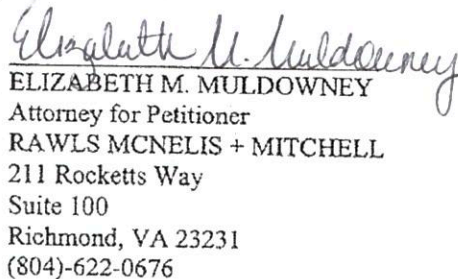 Elizabeth M. Muldowney
ELIZABETH M. MULDOWNEY
Attorney for Petitioner
RAWLS MCNELIS + MITCHELL
211 Rocketts Way
Suite 100
Richmond, VA 23231
(804)-622-0676